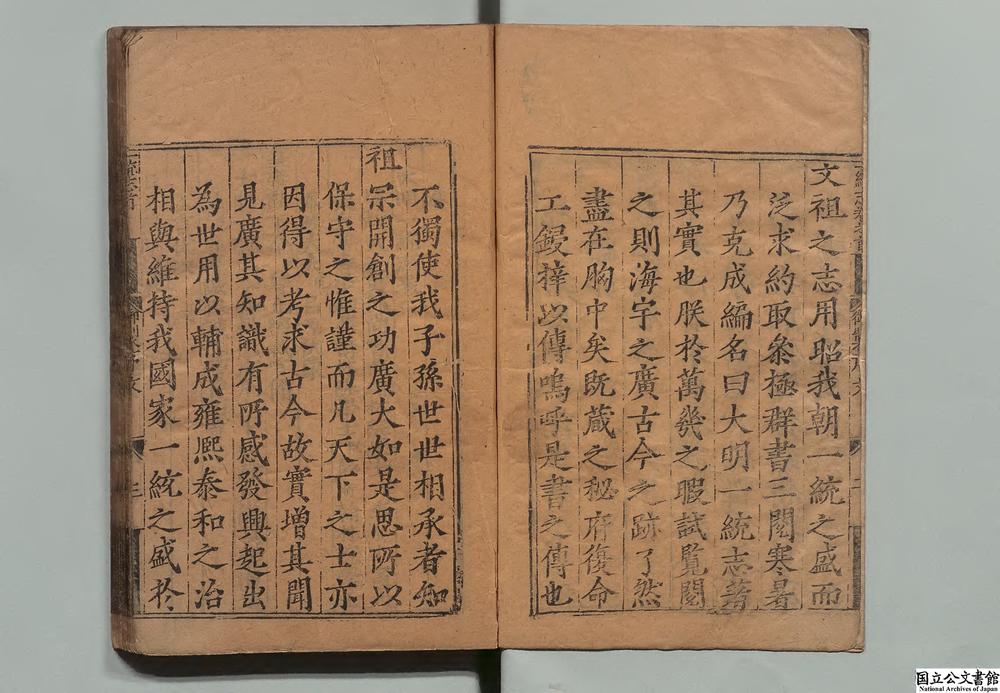 文祖之志用昭我朝一統之盛而
泛求約取叅極群書三閱寒暑
乃克成編名曰大明一統志著
其實也朕於萬㡬之暇試覽閱
之則海宇之廣古今之跡了然
盡在胸中矣既蔵之秘府復命
工鋟梓以傳嗚呼是書之傳也
不獨使我子孫世世相承者知
祖宗開創之功廣大如是思所以
保守之惟謹而凡天下之士亦
因得以考求古今故實增其聞
見廣其知識有所感發興起出
為世用以輔成雍熈泰和之治
相與維持我國家一統之盛於
国立公文書館
National Archives of Japan